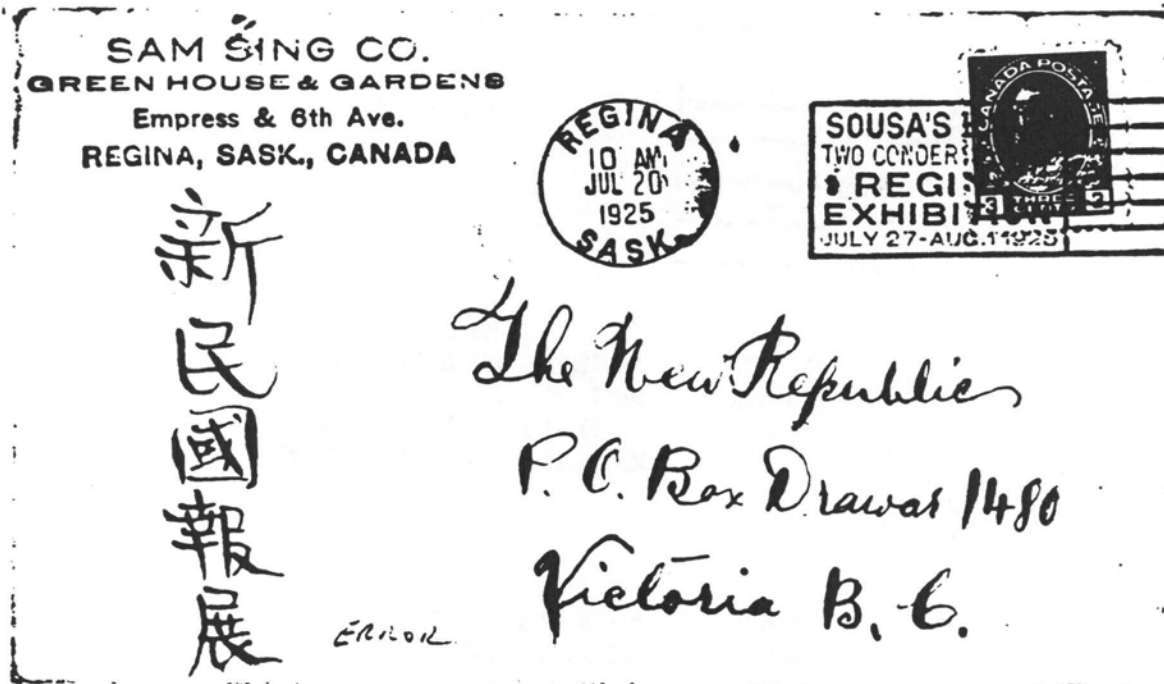 SAM SING CO.
GREEN HOUSE & GARDENS
Empress & 6th Ave.
REGINA, SASK., CANADA
REGINA
10 AM
JUL 20
1925
SASK.
SOUSA'S
TWO CONCERTS
REGINA
EXHIBITION
JULY 27-AUG.1 1925
CANADA POSTAGE
3 THREE CENTS 3
新民國報展
The New Republic
P. O. Box Drawar 1480
Victoria B. C.
ERROR